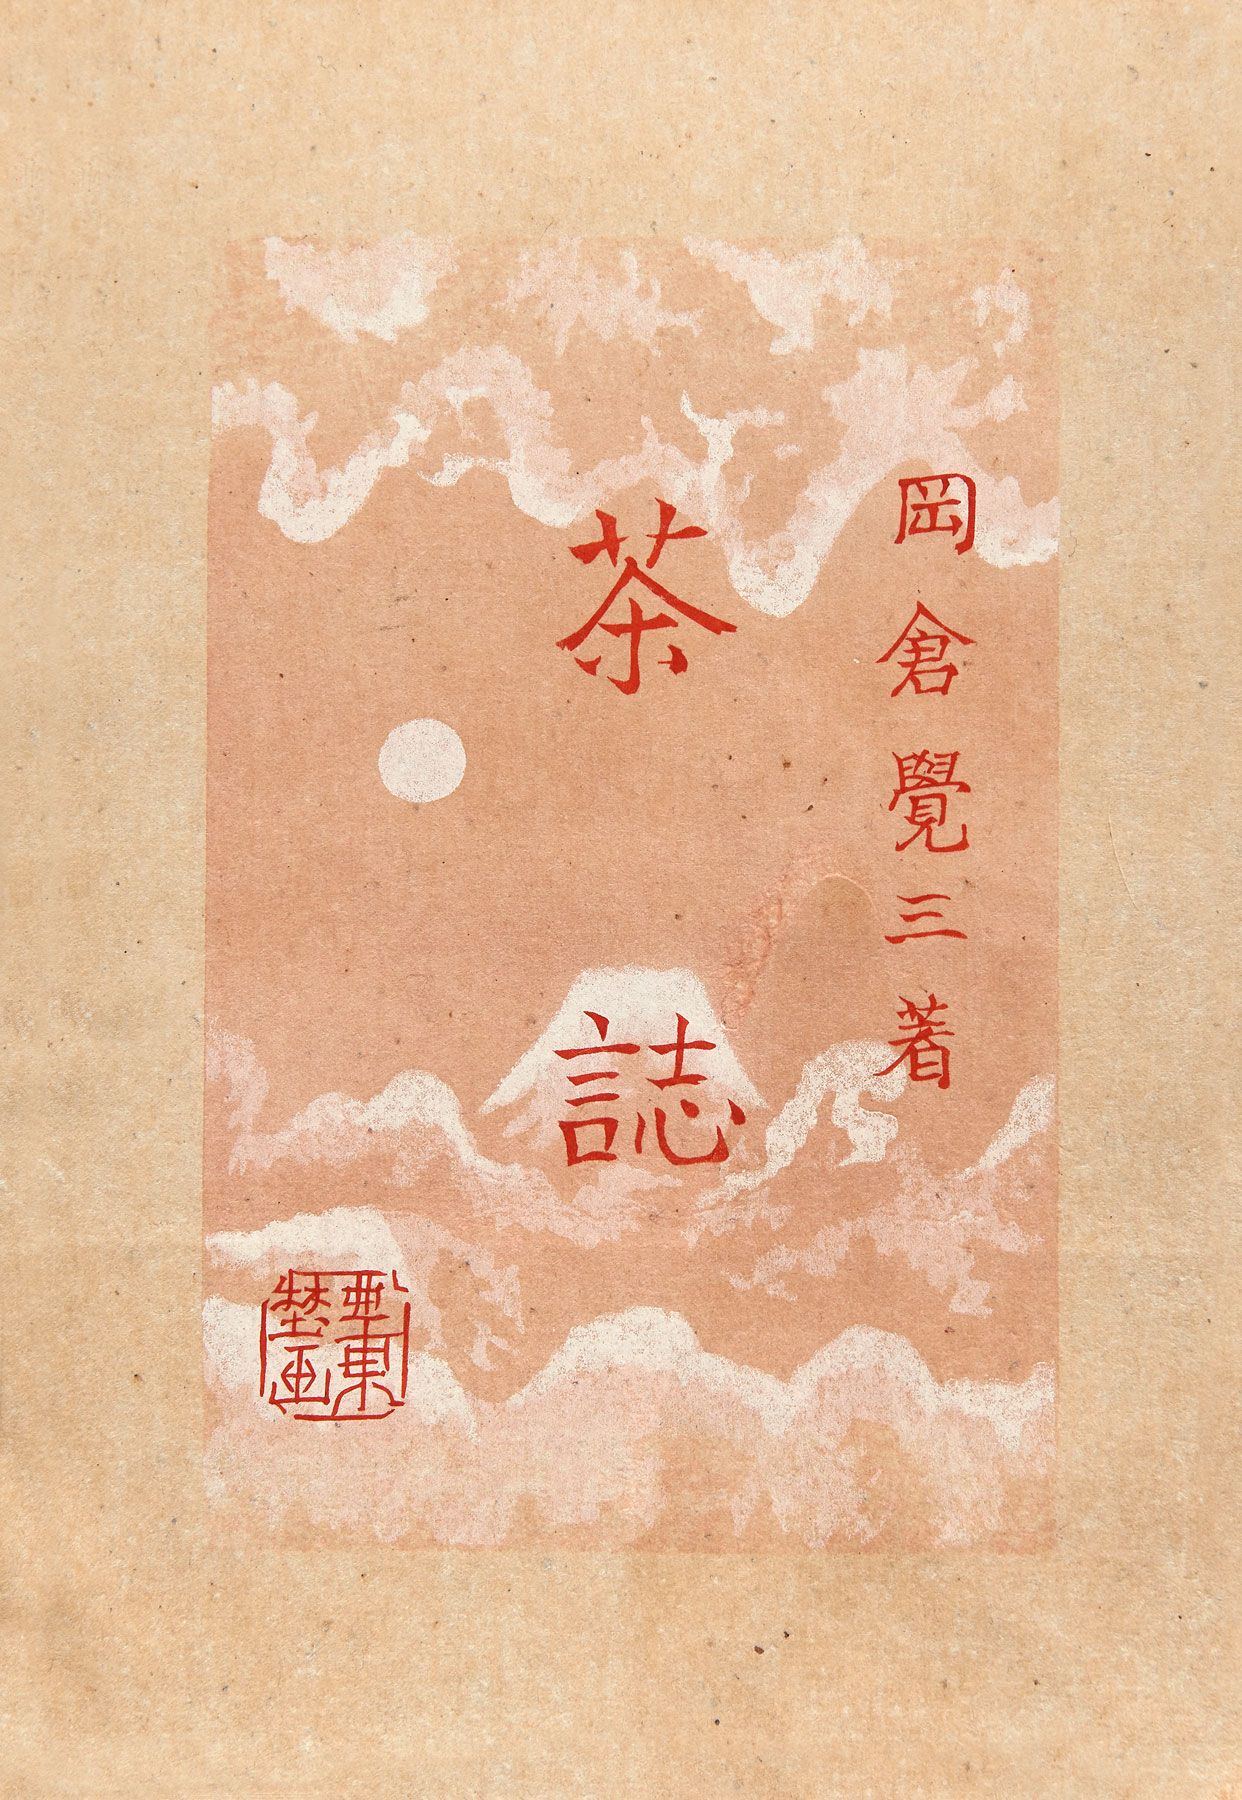 岡倉覺三著
茶誌
亜東